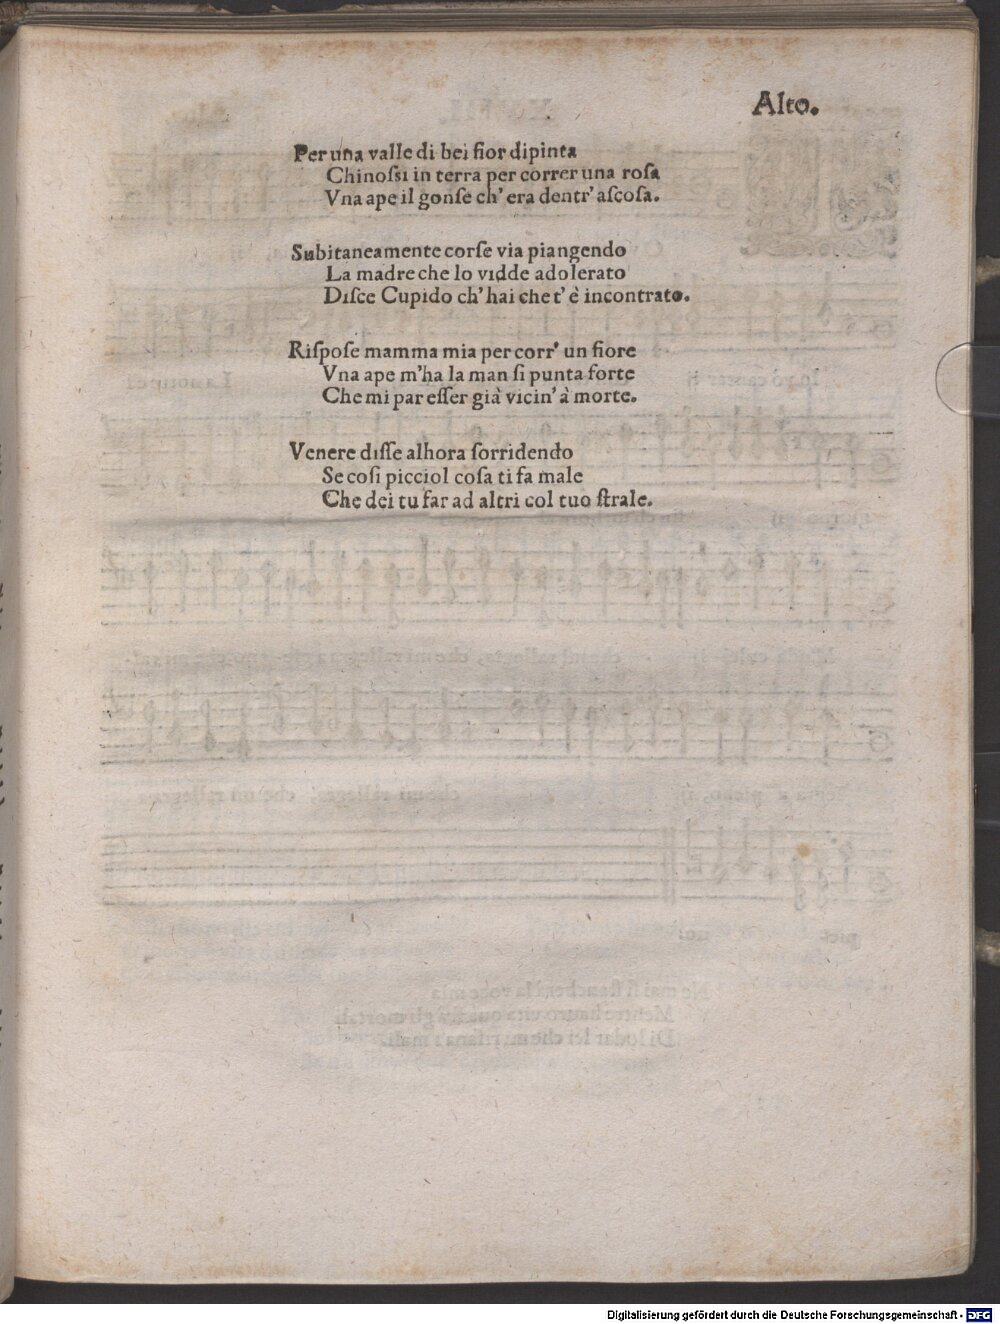 Alto.
Per una valle di bei fior dipinta
Chinoſsi in terra per correr una roſa
Vna ape il gonſe ch' era dentr' aſcoſa.
Subitaneamente corſe via piangendo
La madre che lo vidde adolerato
Diſce Cupido ch' hai che t' è incontrato.
Riſpoſe mamma mia per corr' un fiore
Vna ape m'ha la man ſi punta forte
Che mi par eſſer già vicin' à morte.
Venere diſſe alhora ſorridendo
Se coſi picciol coſa ti fa male
Che dei tu far ad altri col tuo ſtrale.
Digitalisierung gefördert durch die Deutsche Forschungsgemeinschaft - DFG